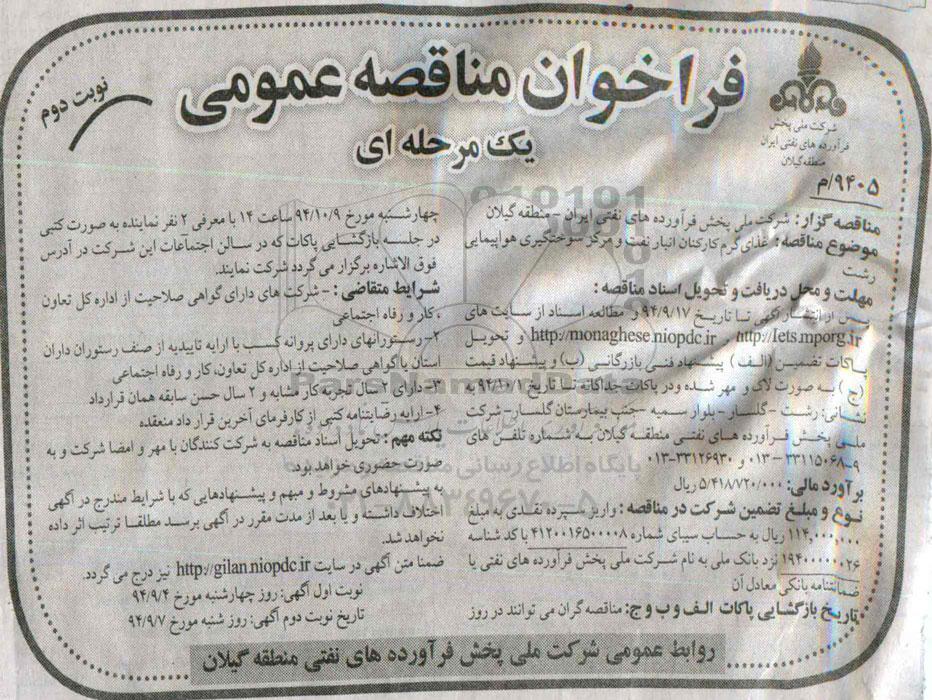 فراخوان مناقصه عمومی
یک مرحله ای
نوبت دوم
شرکت ملی پخش
فرآورده های نفتی ایران
منطقه گیلان
۹۴۰۵/م
مناقصه گزار: شرکت ملی پخش فرآورده های نفتی ایران - منطقه گیلان
موضوع مناقصه: غذای گرم کارکنان انبار نفت و مرکز سوختگیری هواپیمایی
رشت
مهلت و محل دریافت و تحویل اسناد مناقصه :
پس از انتشار آگهی تا تاریخ ۹۴/۹/۱۷ و مطالعه اسناد از سایت های
http://Iets.mporg.ir و http://monaghese.niopdc.ir و تحویل
پاکات تضمین (الف) پیشنهاد فنی بازرگانی (ب) و پیشنهاد قیمت
(ج) به صورت لاک و مهر شده ودر پاکات جداگانه تا تاریخ
نشانی: رشت - گلسار - بلوار سمیه - جنب بیمارستان گلسار - شرکت
ملی پخش فرآورده های نفتی منطقه گیلان به شماره تلفن های
۹-۳۳۱۱۵۰۶۸-۰۱۳ و ۳۳۱۲۶۹۳۰-۰۱۳
برآورد مالی: ۵/۴۱۸۷۲۰/۰۰۰ ریال
نوع و مبلغ تضمین شرکت در مناقصه : واریز سپرده نقدی به مبلغ
۱۱۴,۰۰۰,۰۰۰ ریال به حساب سیبای شماره ۴۱۲۰۰۱۶۵۰۰۰۰۸ با کد شناسه
نزد بانک ملی به نام شرکت ملی پخش فرآورده های نفتی یا
ضمانتنامه بانکی معادل آن
تاریخ بازگشایی پاکات الف و ب و ج: مناقصه گران می توانند در روز
چهارشنبه مورخ ۹۴/۱۰/۹ ساعت ۱۴ با معرفی ۲ نفر نماینده به صورت کتبی
در جلسه بازگشایی پاکات که در سالن اجتماعات این شرکت در آدرس
فوق الاشاره برگزار می گردد شرکت نمایند.
شرایط متقاضی : - شرکت های دارای گواهی صلاحیت از اداره کل تعاون
، کار و رفاه اجتماعی
۲- رستورانهای دارای پروانه کسب با ارایه تاییدیه از صنف رستوران داران
استان یا گواهی صلاحیت از اداره کل تعاون، کار و رفاه اجتماعی
۳- دارای ۲ سال تجربه کار مشابه و ۲ سال حسن سابقه همان قرارداد
۴- ارایه رضایتنامه کتبی از کارفرمای آخرین قرار داد منعقده
نکته مهم : تحویل اسناد مناقصه به شرکت کنندگان با مهر و امضا شرکت و به
صورت حضوری خواهد بود.
به پیشنهادهای مشروط و مبهم و پیشنهادهایی که با شرایط مندرج در آگهی
اختلاف داشته و یا بعد از مدت مقرر در آگهی برسد مطلقا ترتیب اثر داده
نخواهد شد.
ضمنا متن آگهی در سایت http://gilan.niopdc.ir نیز درج می گردد.
نوبت اول آگهی: روز چهارشنبه مورخ ۹۴/۹/۴
تاریخ نوبت دوم آگهی: روز شنبه مورخ ۹۴/۹/۷
روابط عمومی شرکت ملی پخش فرآورده های نفتی منطقه گیلان
ParsNamadData
پایگاه اطلاع رسانی